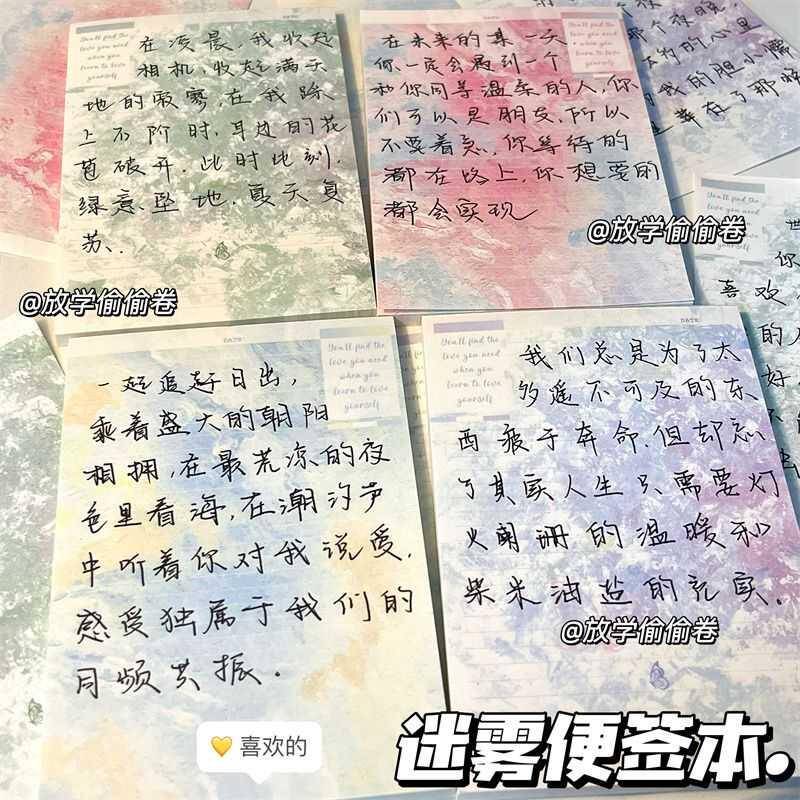 DATE:
You'll find the
love you need
when you
learn to love
yourself
在凌晨,我收起
相机,收起满天
地的寂寥,在我踩
上石阶时,耳边的花
苞破开,此时此刻,
绿意坠地,夏天复
苏.
@放学偷偷卷
DATE:
You'll find the
love you need
when you
learn to love
yourself
在未来的某一天
你一定会遇到一个
和你同等温柔的人,你
们可以是朋友,所以
不要着急,你等待的
都在路上,你想要的
都会实现
@放学偷偷卷
个夜晚,
的心里
的胆小懦
在了那晚
You'll find the
love you need
when you
learn to love
yourself
你
喜欢
的人
好
DATE:
You'll find the
love you need
when you
learn to love
yourself
一起追赶日出,
乘着盛大的朝阳
相拥,在最荒凉的夜
色里看海,在潮汐声
中听着你对我说爱,
感受独属于我们的
月频共振.
DATE:
You'll find the
love you need
when you
learn to love
yourself
我们总是为了太
多遥不可及的东
西疲于奔命,但却忘
了其实人生只需要灯
火阑珊的温暖和
柴米油盐的充实.
@放学偷偷卷
💛 喜欢的
迷雾便签本.